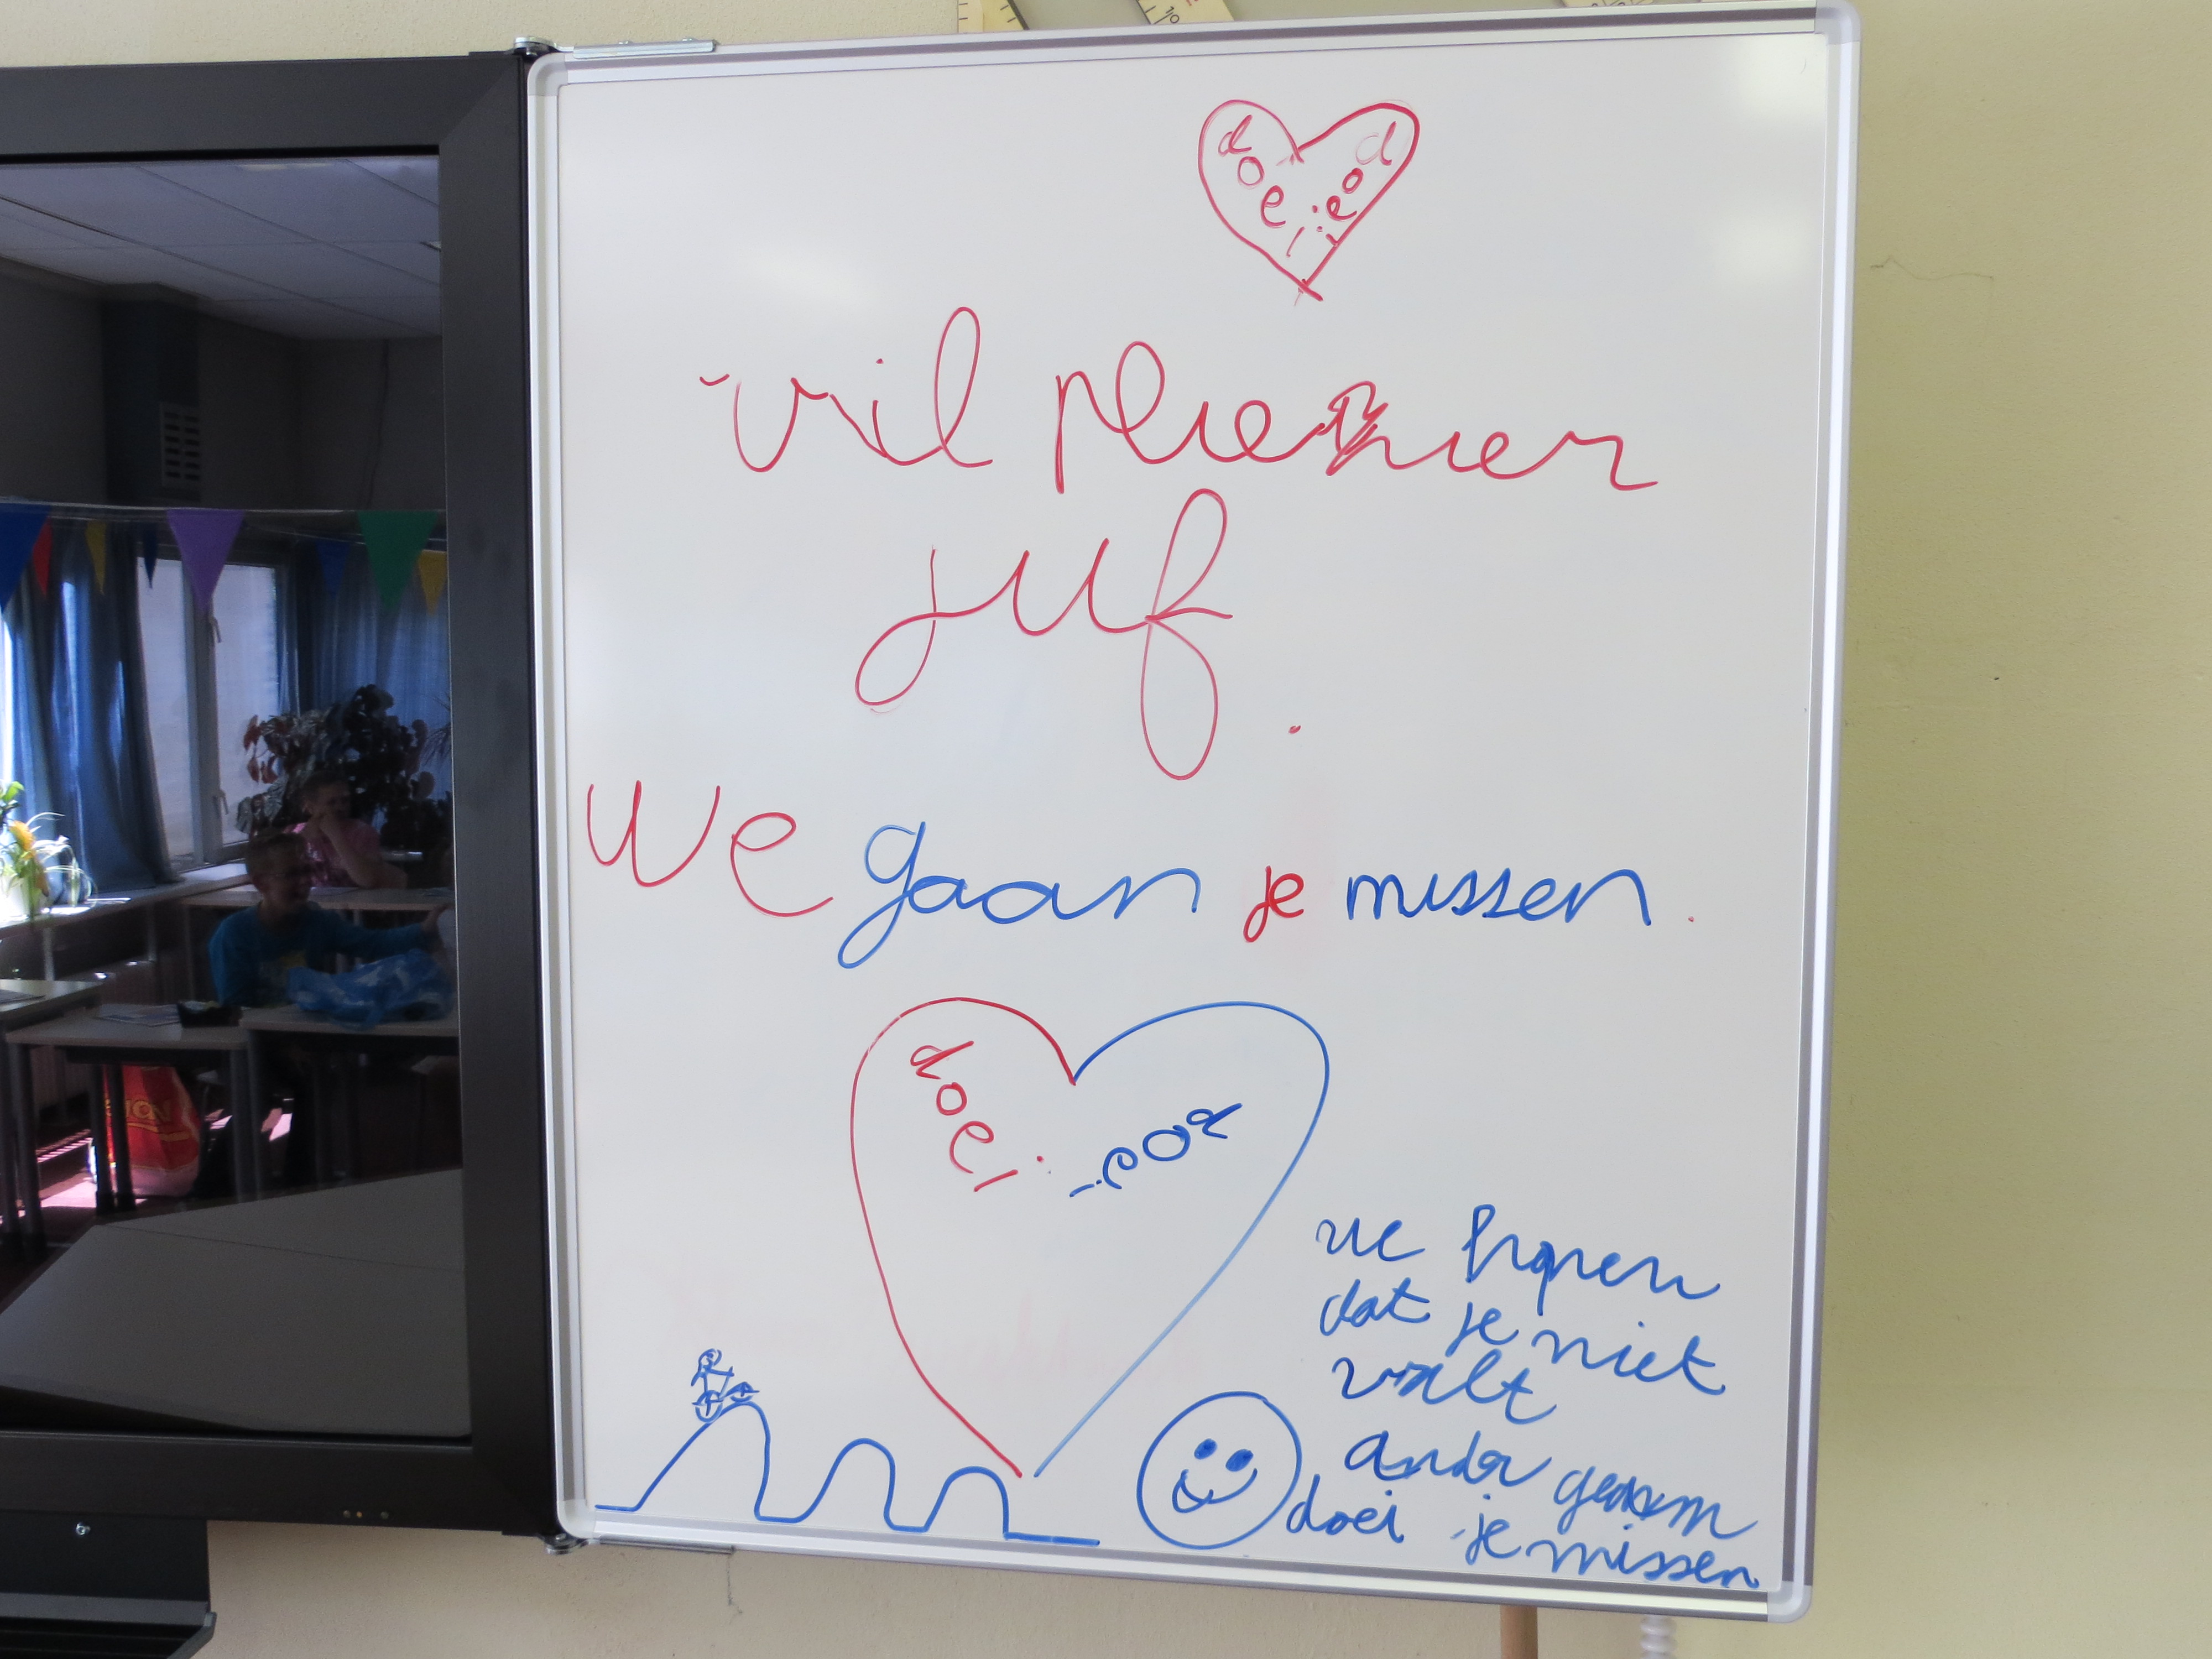 doei doei
vil pleizier
juf.
We gaan je missen.
doei doei
we hopen
dat je niet
valt
andr gaan
doei je missen